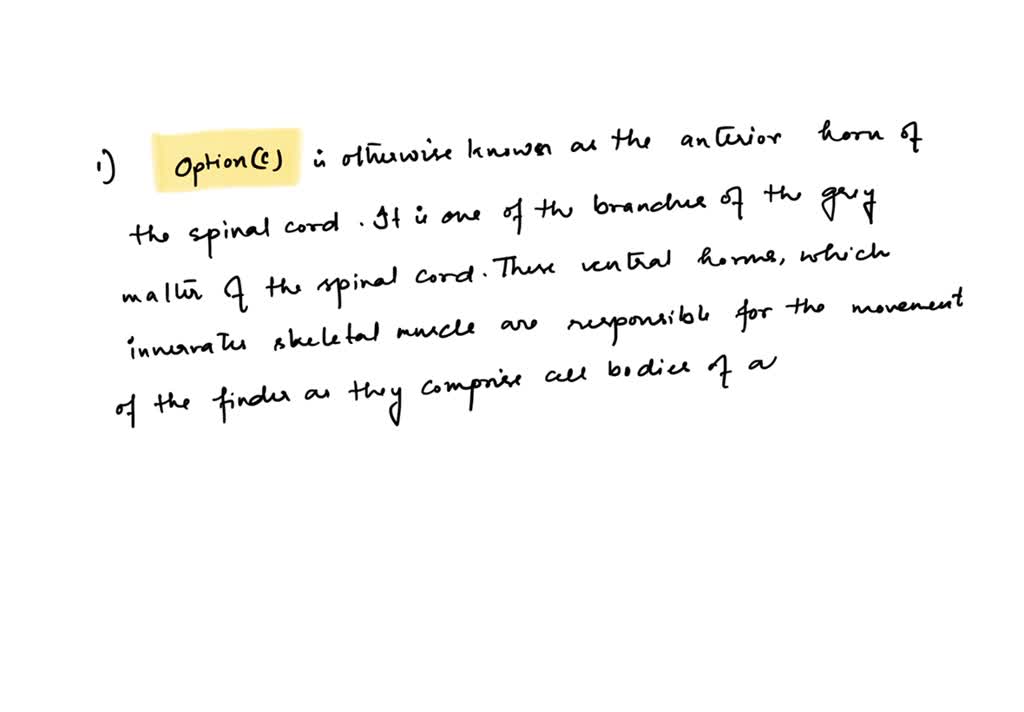 1) Option(c) is otherwise known as the anterior horn of
the spinal cord. It is one of the branches of the grey
matter of the spinal cord. These ventral horns, which
innervates skeletal muscle are responsible for the movement
of the finder as they comprise cell bodies of a